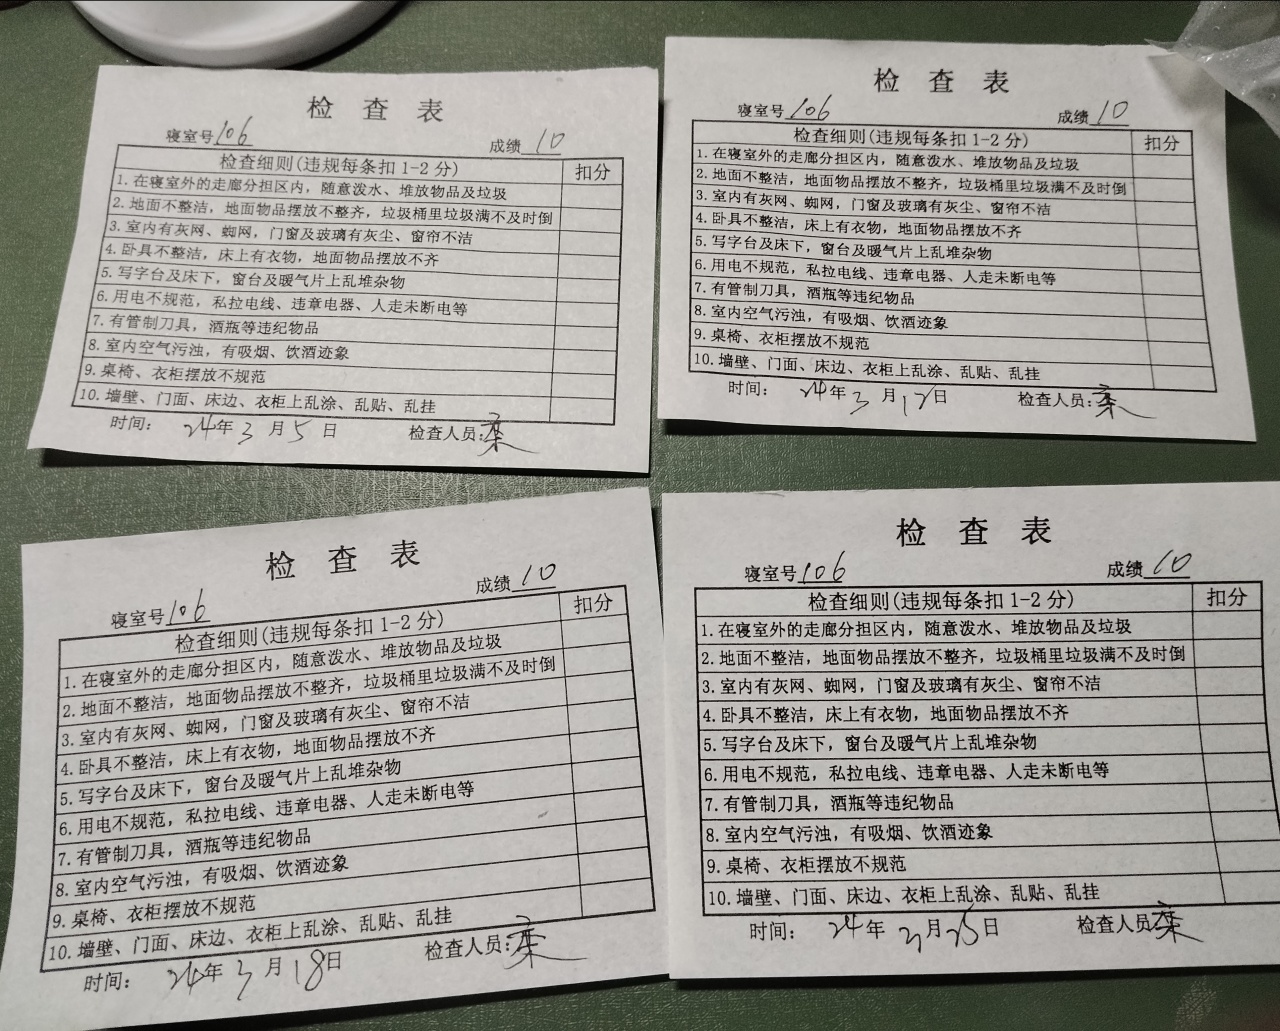 检查表
寝室号106 成绩10
检查细则(违规每条扣1-2分) 扣分
1.在寝室外的走廊分担区内，随意泼水、堆放物品及垃圾
2.地面不整洁，地面物品摆放不整齐，垃圾桶里垃圾满不及时倒
3.室内有灰网、蜘网，门窗及玻璃有灰尘、窗帘不洁
4.卧具不整洁，床上有衣物，地面物品摆放不齐
5.写字台及床下，窗台及暖气片上乱堆杂物
6.用电不规范，私拉电线、违章电器、人走未断电等
7.有管制刀具，酒瓶等违纪物品
8.室内空气污浊，有吸烟、饮酒迹象
9.桌椅、衣柜摆放不规范
10.墙壁、门面、床边、衣柜上乱涂、乱贴、乱挂
时间：24年3月5日 检查人员:栾
检查表
寝室号106 成绩10
检查细则(违规每条扣1-2分) 扣分
1.在寝室外的走廊分担区内，随意泼水、堆放物品及垃圾
2.地面不整洁，地面物品摆放不整齐，垃圾桶里垃圾满不及时倒
3.室内有灰网、蜘网，门窗及玻璃有灰尘、窗帘不洁
4.卧具不整洁，床上有衣物，地面物品摆放不齐
5.写字台及床下，窗台及暖气片上乱堆杂物
6.用电不规范，私拉电线、违章电器、人走未断电等
7.有管制刀具，酒瓶等违纪物品
8.室内空气污浊，有吸烟、饮酒迹象
9.桌椅、衣柜摆放不规范
10.墙壁、门面、床边、衣柜上乱涂、乱贴、乱挂
时间：24年3月12日 检查人员:栾
检查表
寝室号106 成绩10
检查细则(违规每条扣1-2分) 扣分
1.在寝室外的走廊分担区内，随意泼水、堆放物品及垃圾
2.地面不整洁，地面物品摆放不整齐，垃圾桶里垃圾满不及时倒
3.室内有灰网、蜘网，门窗及玻璃有灰尘、窗帘不洁
4.卧具不整洁，床上有衣物，地面物品摆放不齐
5.写字台及床下，窗台及暖气片上乱堆杂物
6.用电不规范，私拉电线、违章电器、人走未断电等
7.有管制刀具，酒瓶等违纪物品
8.室内空气污浊，有吸烟、饮酒迹象
9.桌椅、衣柜摆放不规范
10.墙壁、门面、床边、衣柜上乱涂、乱贴、乱挂
时间：24年3月18日 检查人员:栾
检查表
寝室号106 成绩10
检查细则(违规每条扣1-2分) 扣分
1.在寝室外的走廊分担区内，随意泼水、堆放物品及垃圾
2.地面不整洁，地面物品摆放不整齐，垃圾桶里垃圾满不及时倒
3.室内有灰网、蜘网，门窗及玻璃有灰尘、窗帘不洁
4.卧具不整洁，床上有衣物，地面物品摆放不齐
5.写字台及床下，窗台及暖气片上乱堆杂物
6.用电不规范，私拉电线、违章电器、人走未断电等
7.有管制刀具，酒瓶等违纪物品
8.室内空气污浊，有吸烟、饮酒迹象
9.桌椅、衣柜摆放不规范
10.墙壁、门面、床边、衣柜上乱涂、乱贴、乱挂
时间：24年3月25日 检查人员:栾